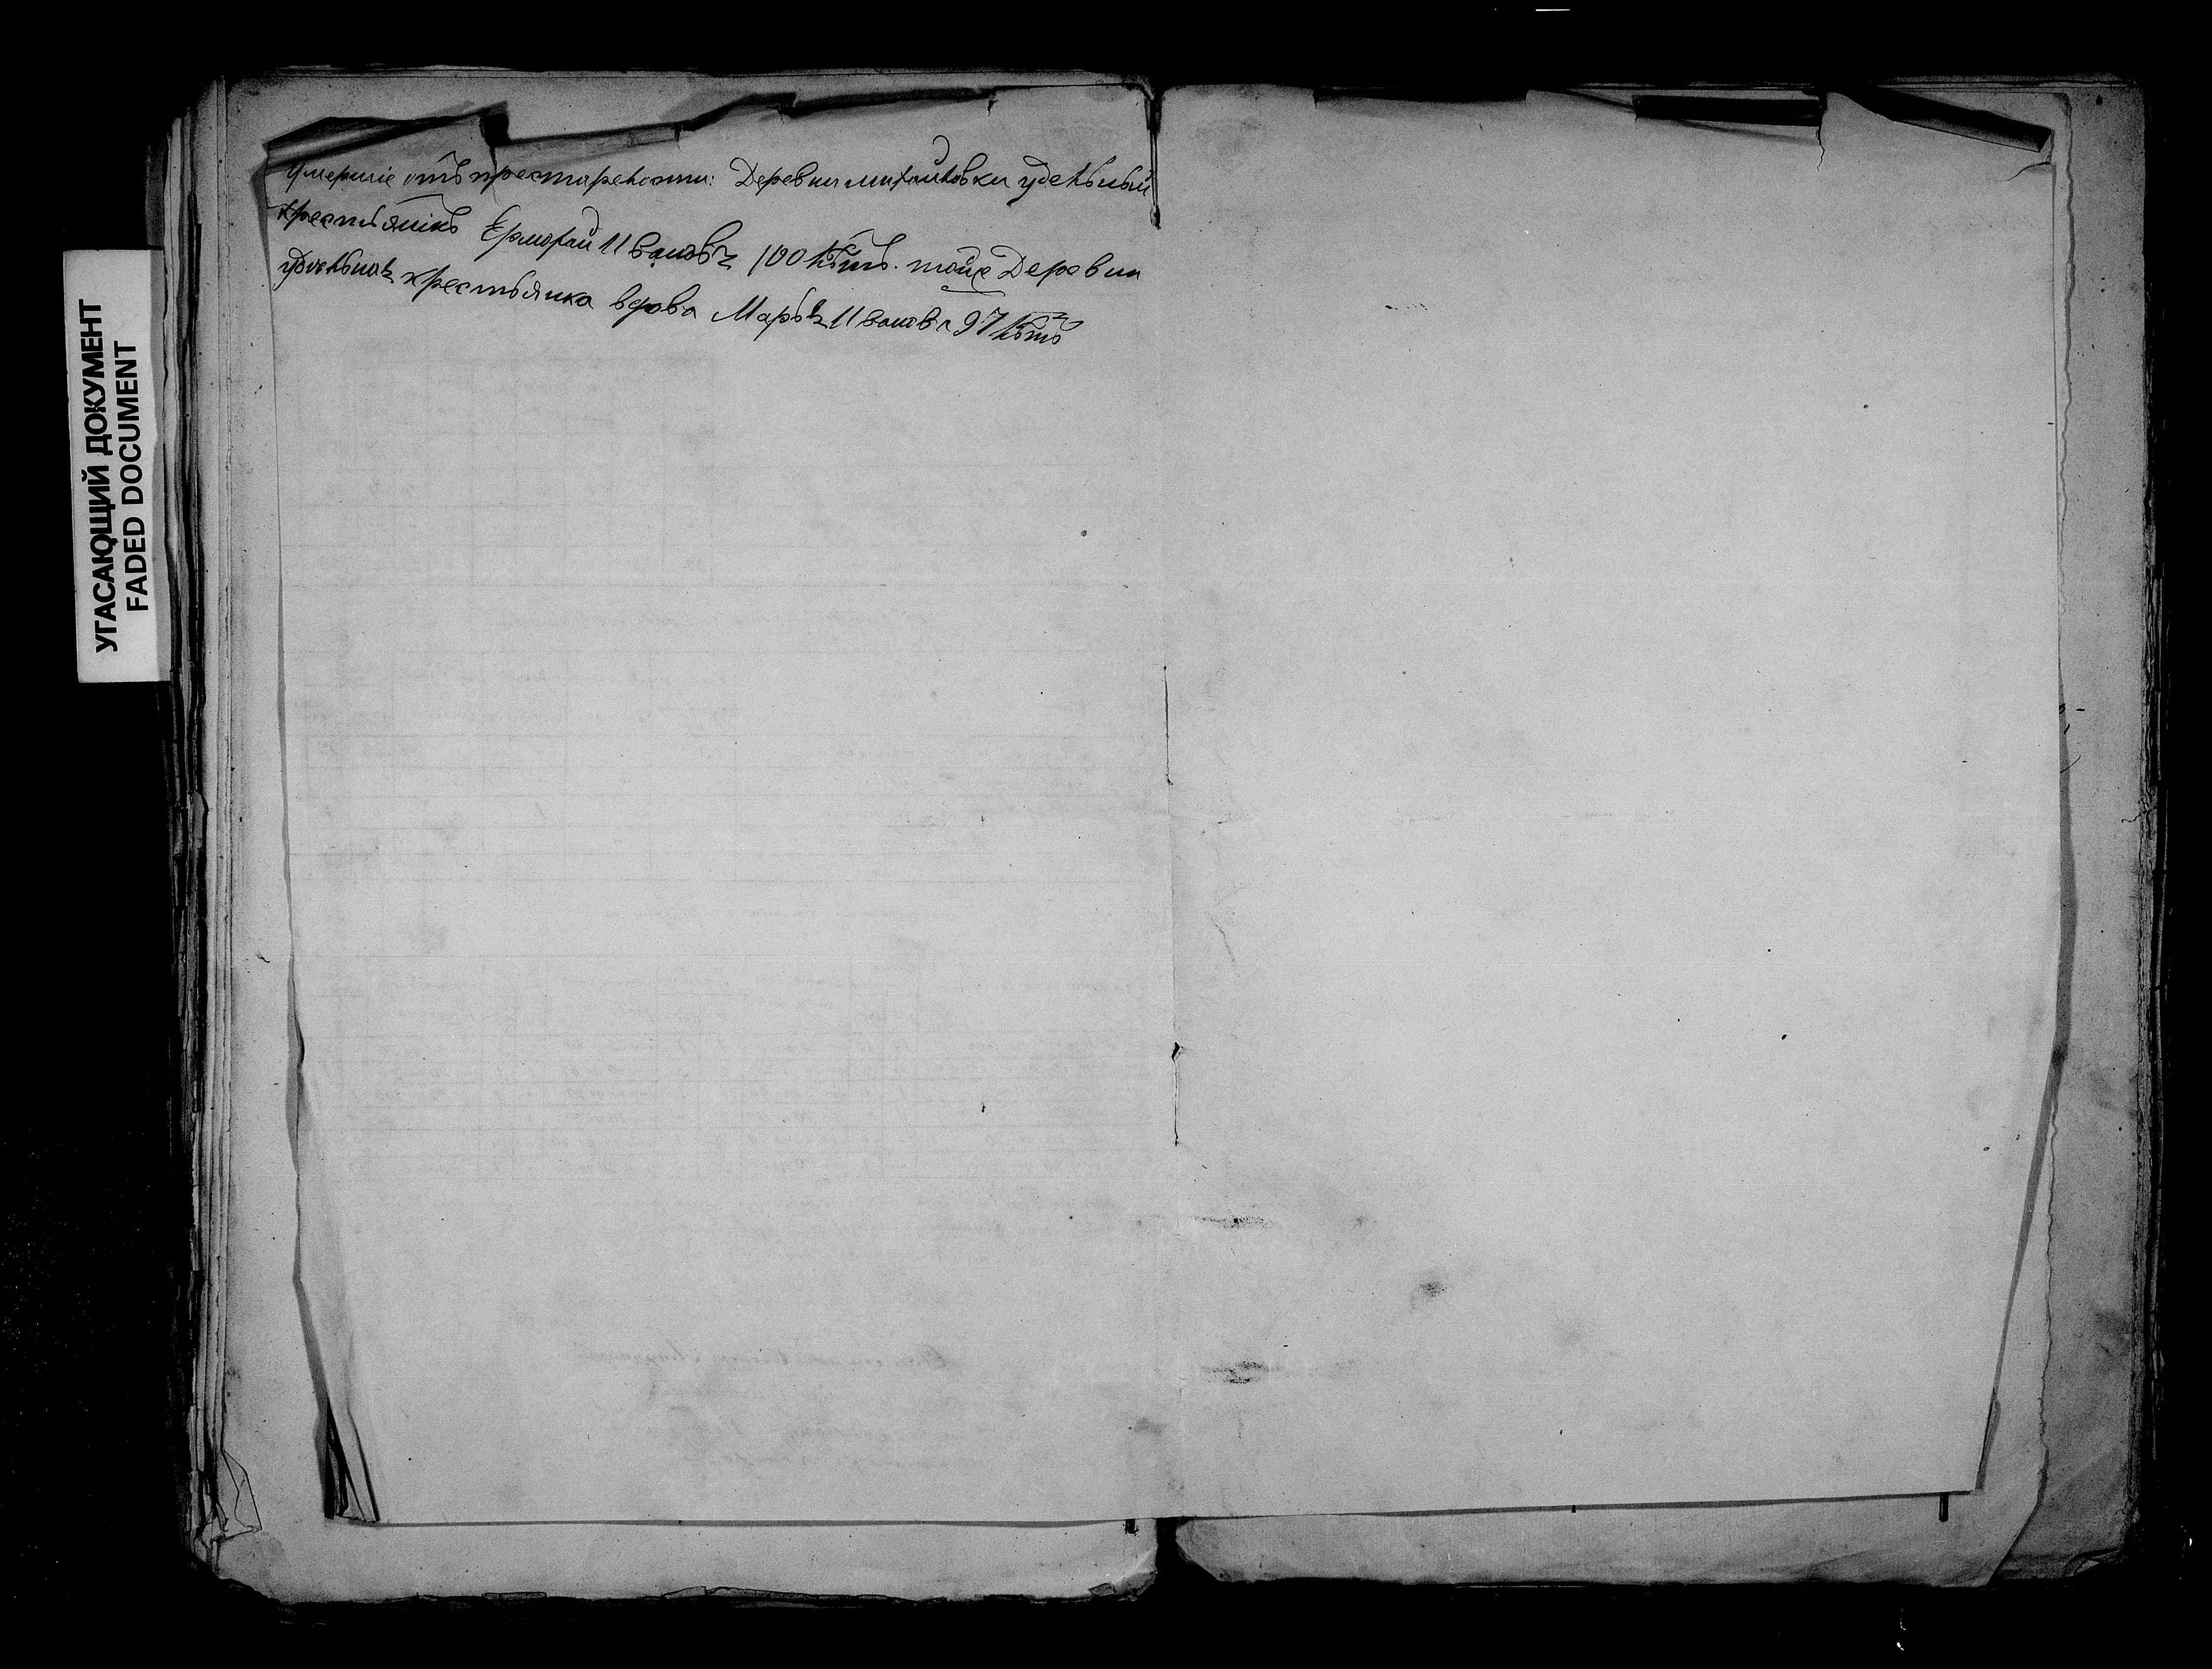 Умершiе отъ престарелости: Деревни михайловки удельный
крестьянiнъ Ермолай Ивановъ 100 лѣтъ. тойже Деревни
удельная крестьянка вдова Марья Иванова 97 лѣтъ
УГАСАЮЩИЙ ДОКУМЕНТ
FADED DOCUMENT